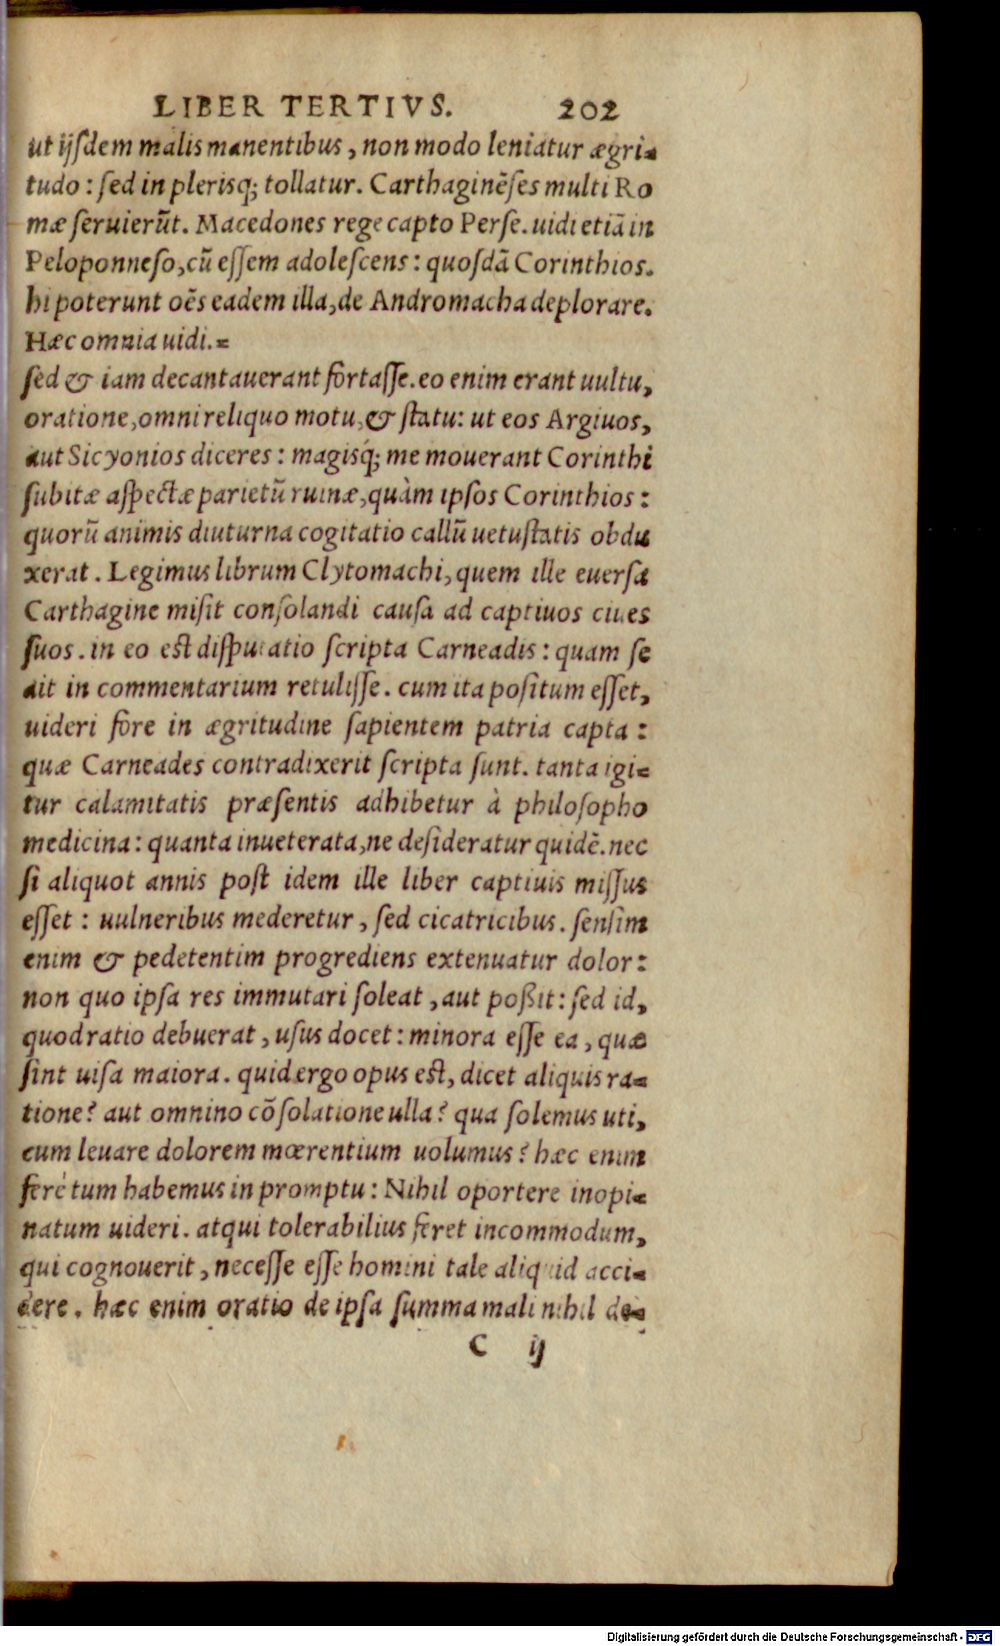 LIBER TERTIVS. 202
ut ijſdem malis manentibus, non modo leniatur ægri-
tudo: ſed in plerisq; tollatur. Carthaginẽſes multi Ro
mæ ſeruierũt. Macedones rege capto Perſe. uidi etiã in
Peloponneſo, cũ eſſem adoleſcens: quoſdã Corinthios.
hi poterunt oẽs eadem illa, de Andromacha deplorare.
Hæc omnia uidi.=
ſed & iam decantauerant fortaſſe. eo enim erant uultu,
oratione, omni reliquo motu, & ſtatu: ut eos Argiuos,
aut Sicyonios diceres: magisq́; me mouerant Corinthi
ſubitæ aſpectæ parietũ ruinæ, quàm ipſos Corinthios:
quorũ animis diuturna cogitatio callũ uetuſtatis obdu
xerat. Legimus librum Clytomachi, quem ille euerſa
Carthagine miſit conſolandi cauſa ad captiuos ciues
ſuos. in eo eſt diſputatio ſcripta Carneadis: quam ſe
ait in commentarium retuliſſe. cum ita poſitum eſſet,
uideri fore in ægritudine ſapientem patria capta:
quæ Carneades contradixerit ſcripta ſunt. tanta igi-
tur calamitatis præſentis adhibetur à philoſopho
medicina: quanta inueterata, ne deſideratur quidẽ. nec
ſi aliquot annis poſt idem ille liber captiuis miſſus
eſſet: uulneribus mederetur, ſed cicatricibus. ſenſim
enim & pedetentim progrediens extenuatur dolor:
non quo ipſa res immutari ſoleat, aut poßit: ſed id,
quod ratio debuerat, uſus docet: minora eſſe ea, quæ
ſint uiſa maiora. quid ergo opus eſt, dicet aliquis ra-
tione? aut omnino cõſolatione ulla? qua ſolemus uti,
cum leuare dolorem mœrentium uolumus? hæc enim
ferè tum habemus in promptu: Nihil oportere inopi-
natum uideri. atqui tolerabilius feret incommodum,
qui cognouerit, neceſſe eſſe homini tale aliquid acci-
dere. hæc enim oratio de ipſa ſumma mali nihil de-
C ij
Digitalisierung gefördert durch die Deutsche Forschungsgemeinschaft - DFG